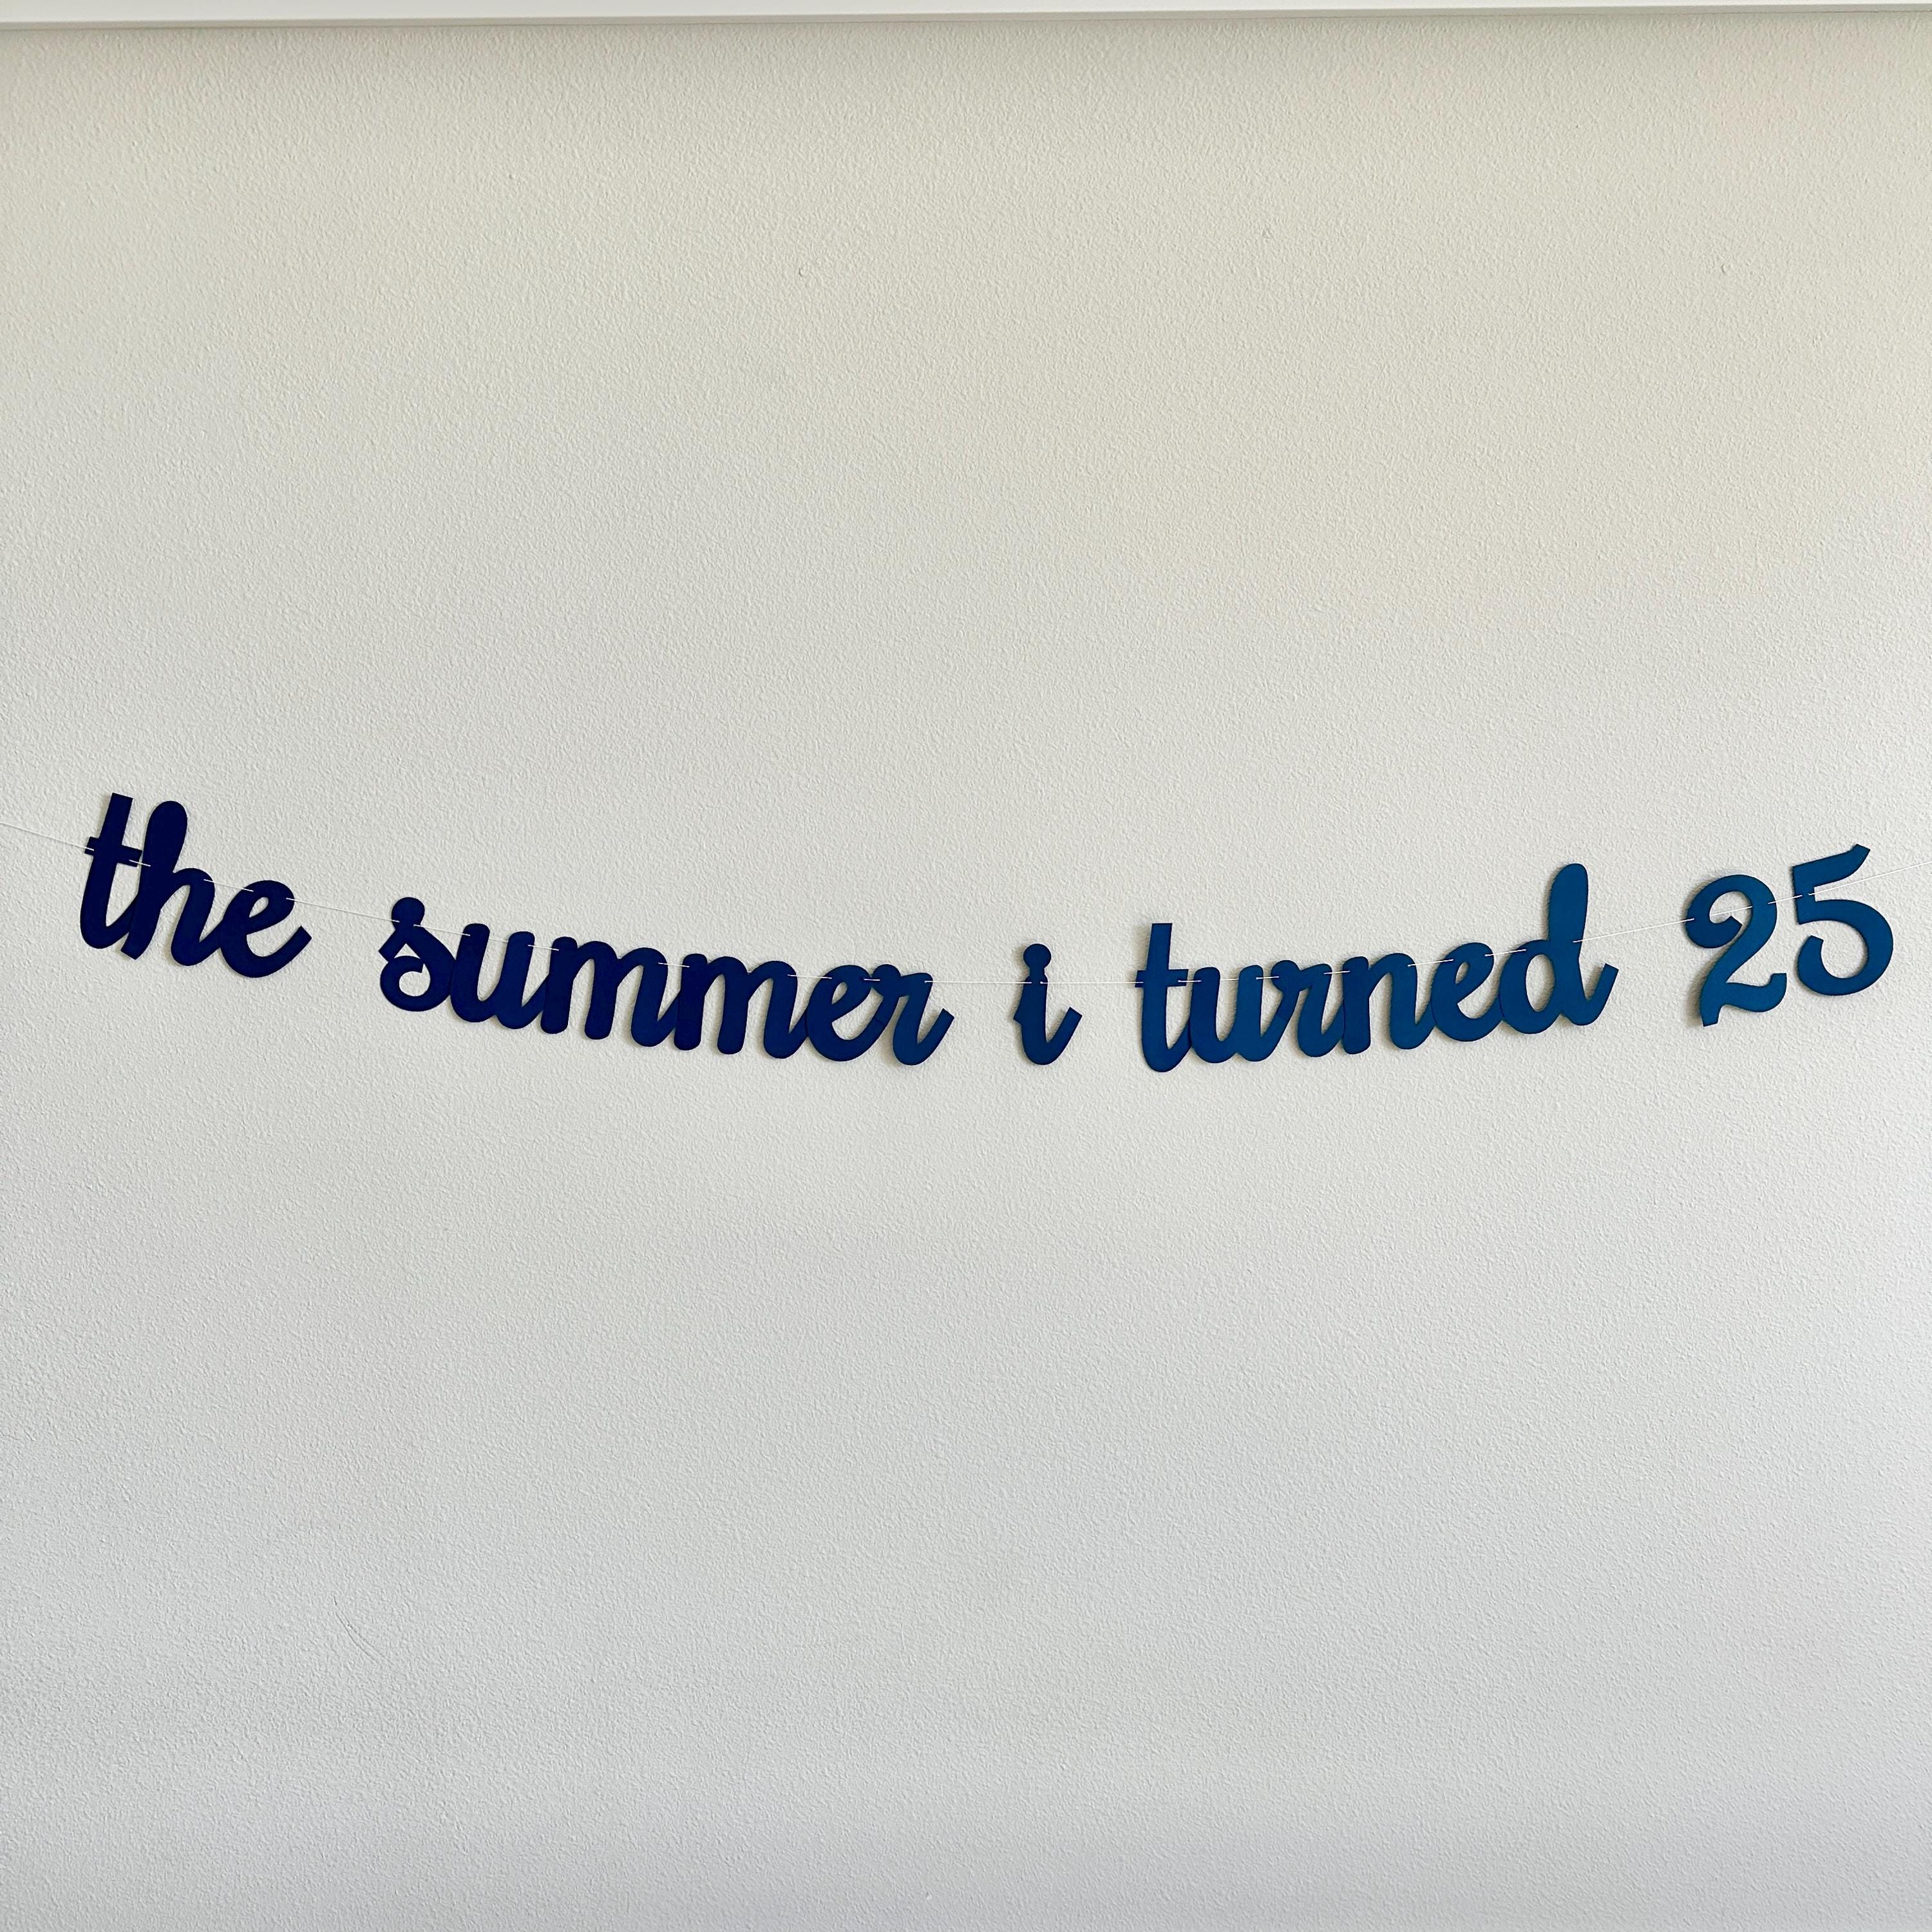 the summer i turned 25